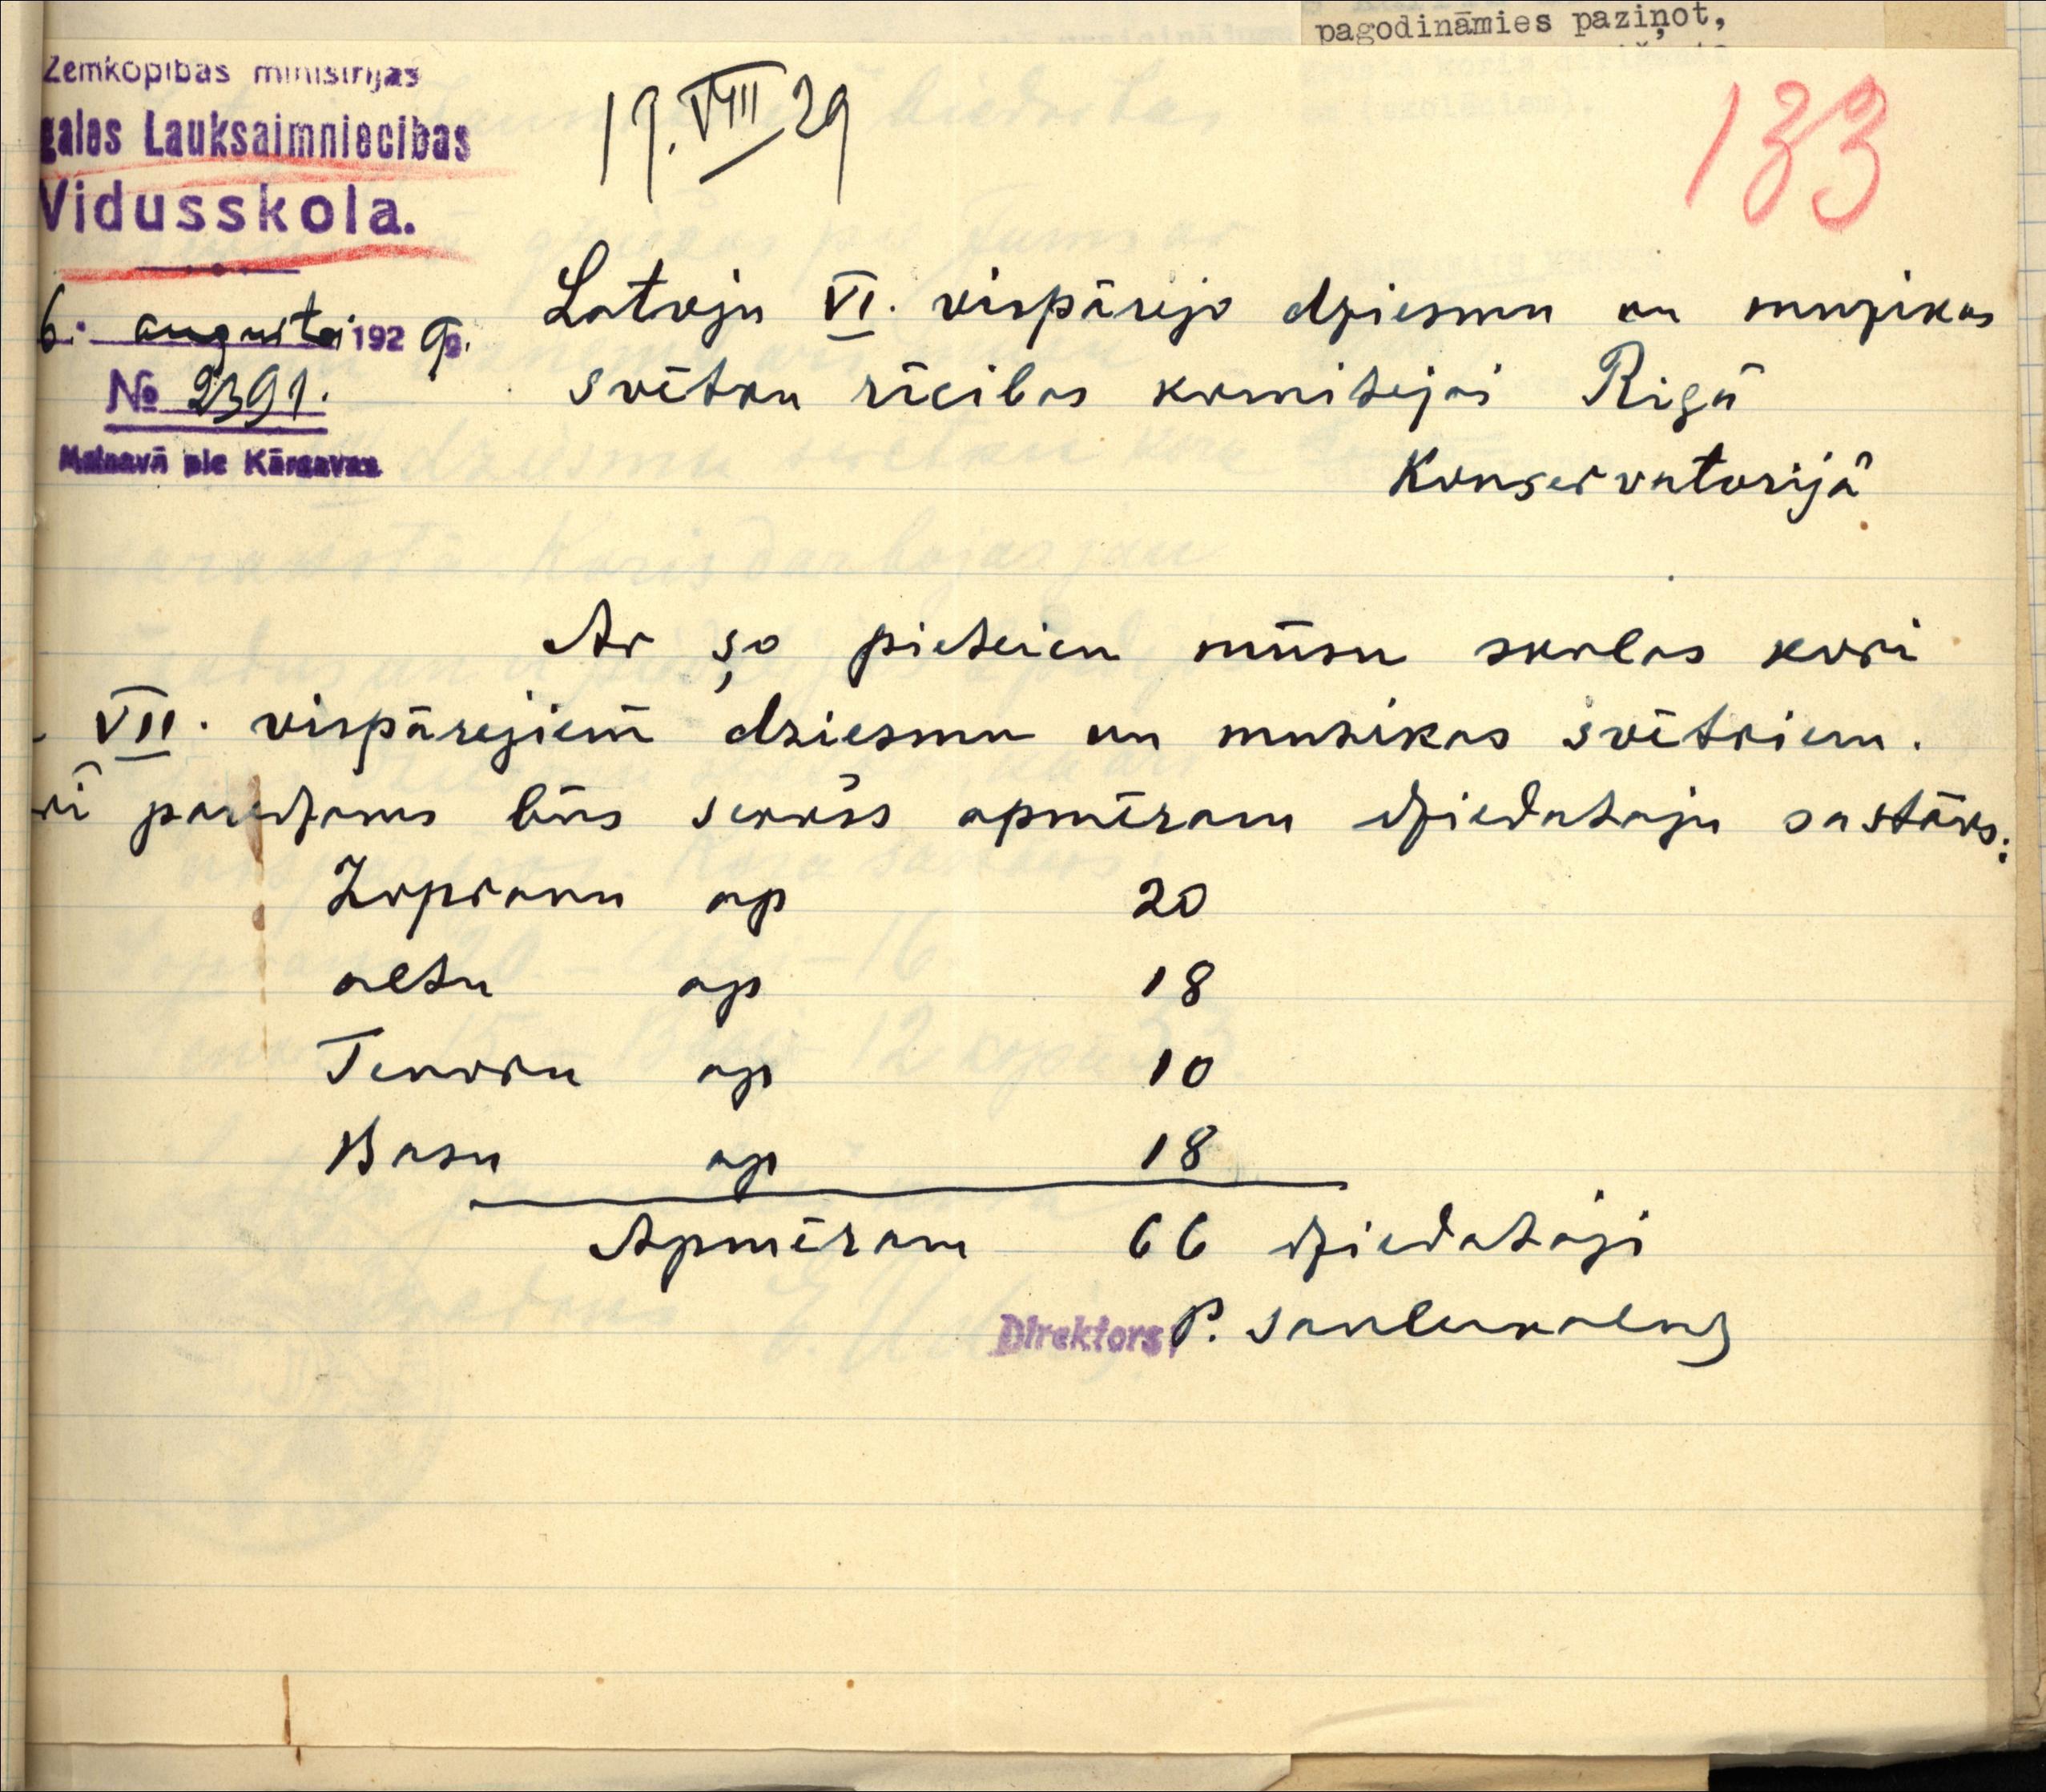 pagodināmies paziņot,
Zemkopības ministrijas
gales Lauksaimniecības
Vidusskola.
19.VIII 29
133
6. augustā 1929g.
№ 2391.
Malnavā pie Kārsavas
Latvju VI. vispārejo dziesmu un muzikas
svētku rīcibas komitejai Rigā
Konservatorijā
Ar šo pieteicu mūsu skolas kori
VII. vispārejiem dziesmu un muzikas svētkiem.
paredzams būs sekošs apmēram dziedataju sastāvs:
Zopranu ap 20
altu ap 18
Tenoru ap 10
Basu ap 18
Apmēram 66 dziedataji
Direktors: P. Saulukalns